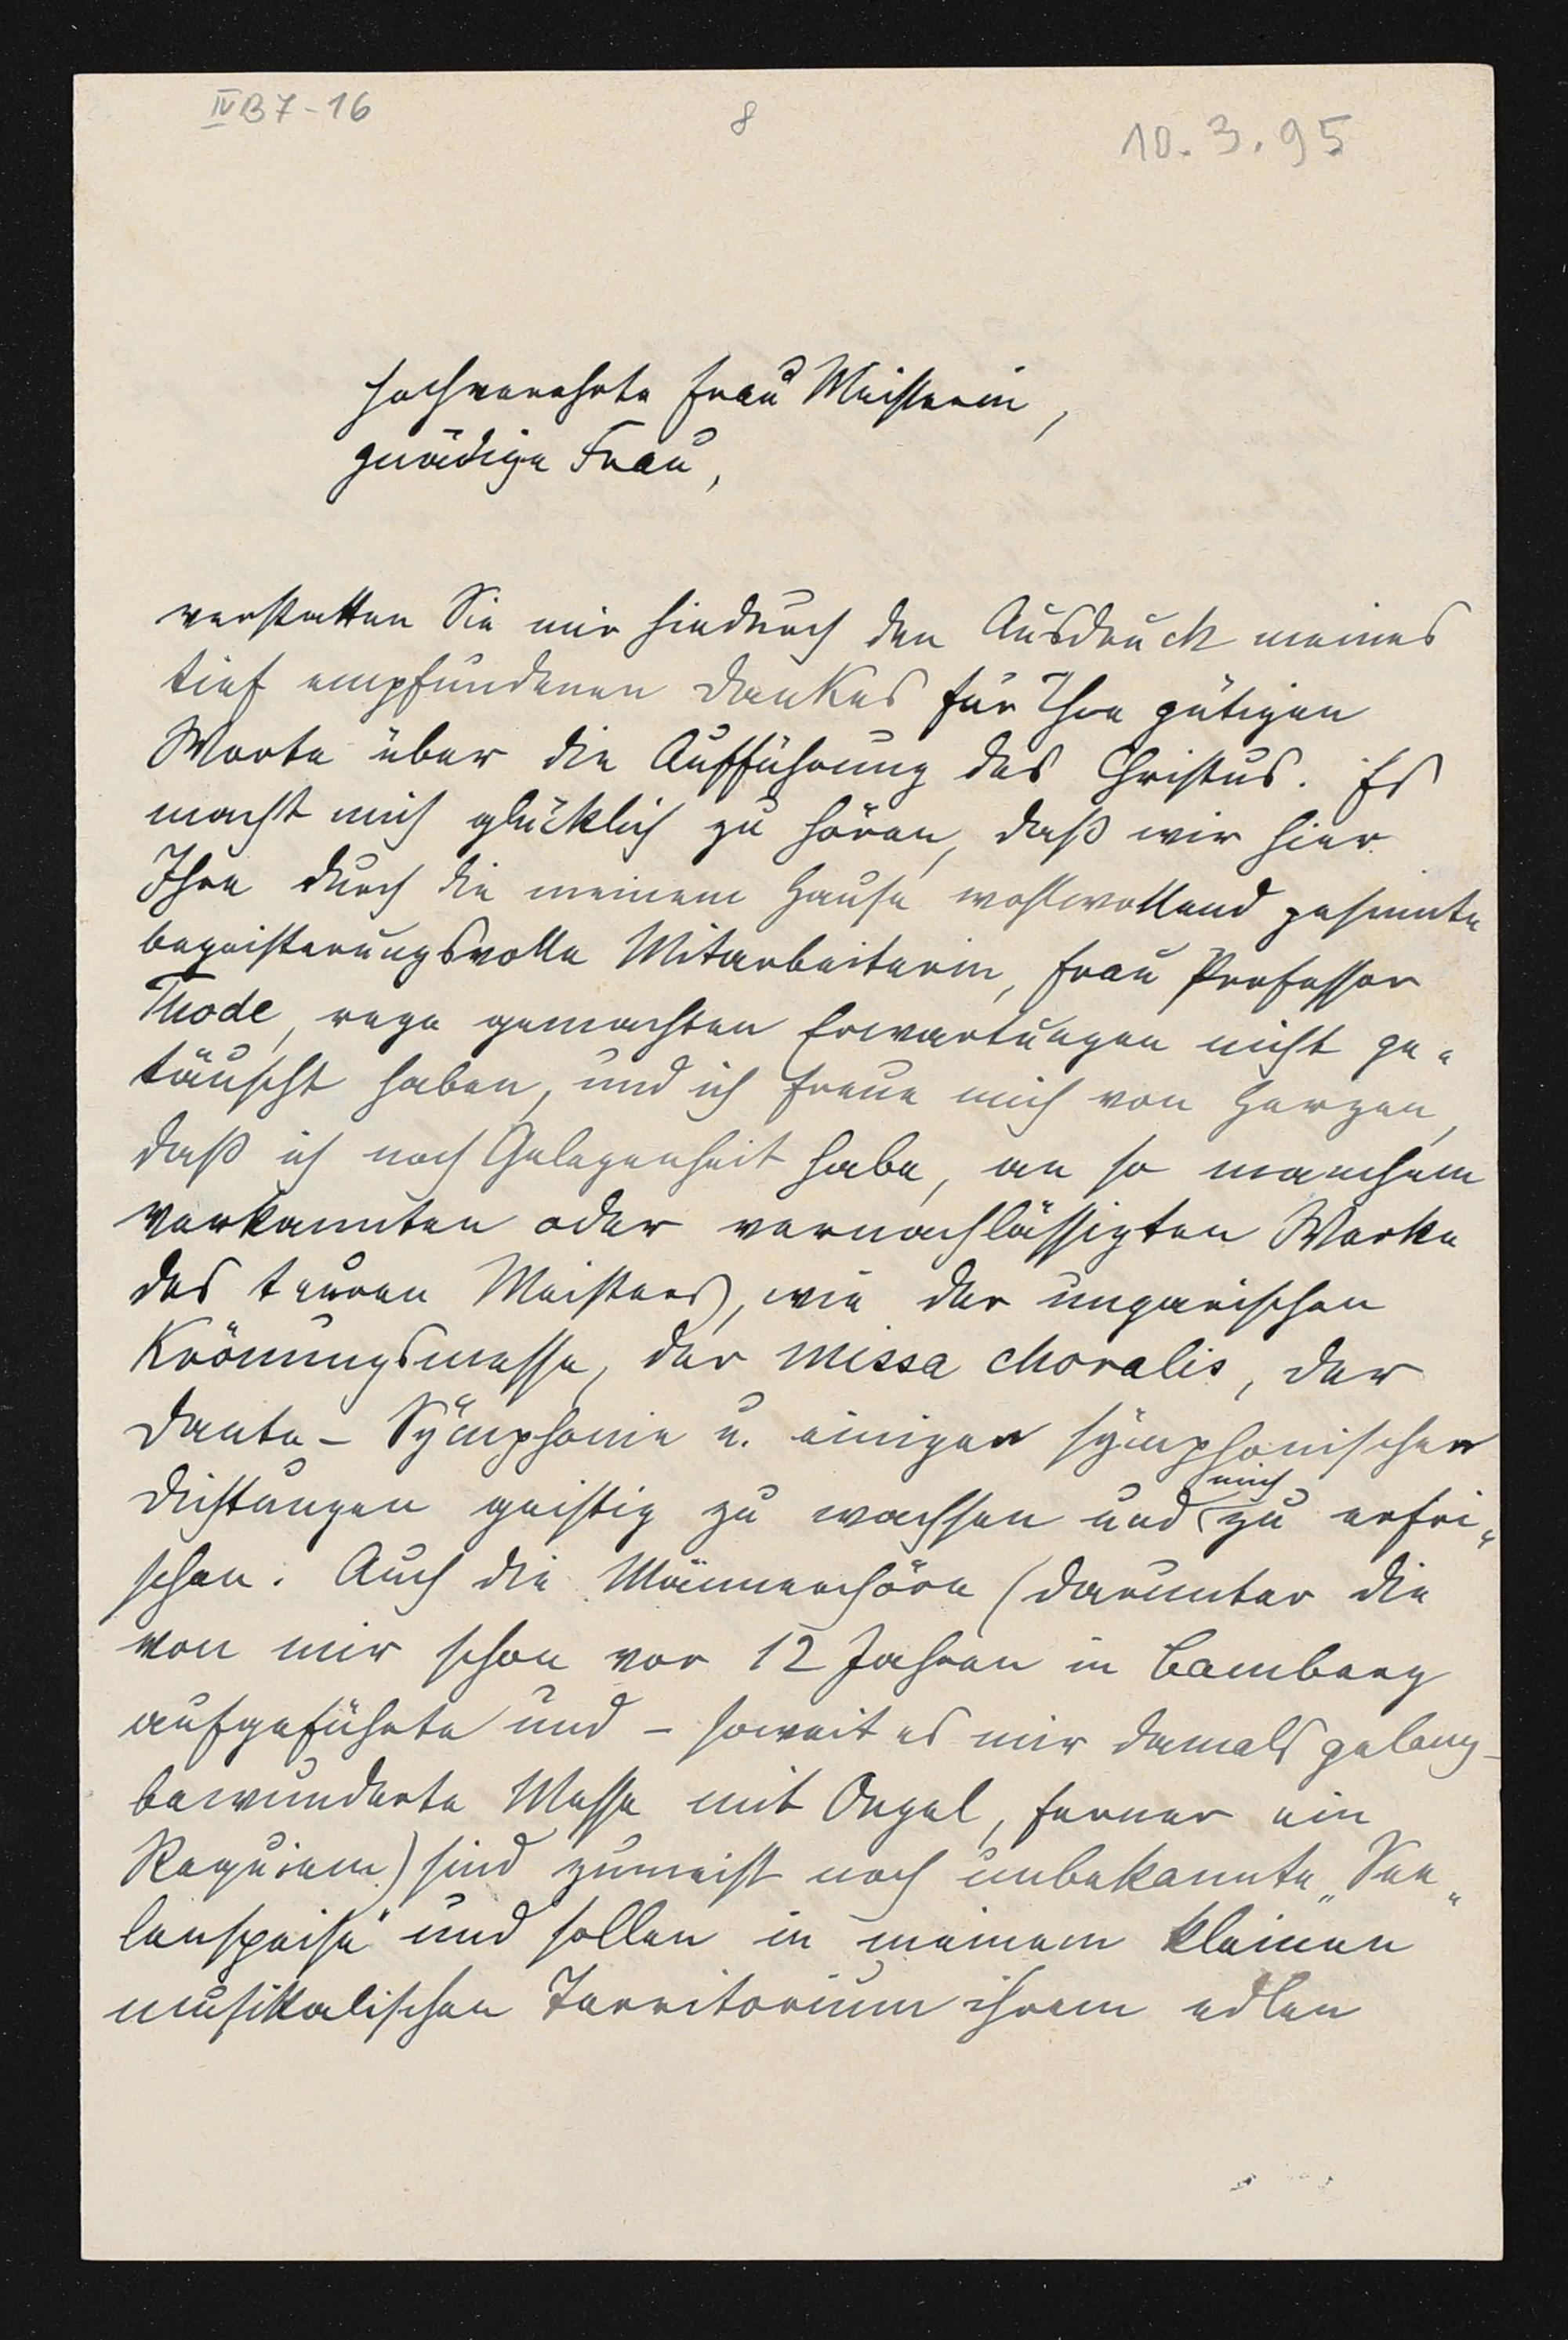 IV B 7-16
8
10.3.95
Hochverehrte Frau Meisterin,
gnädige Frau,
verstatten Sie mir hiedurch den Ausdruck meines
tief empfundenen Dankes für Ihre gütigen
Worte über die Aufführung des Christus. Es
macht mich glücklich zu hören, daß wir hier
Ihre durch die meinem Hause wohlwollend gesinnte
begeisterungsvolle Mitarbeiterin, Frau Professor
Thode, rege gemachten Erwartungen nicht ge-
täuscht haben, und ich freue mich von Herzen,
daß ich noch Gelegenheit habe, an so manchem
verkannten oder vernachlässigten Werke
des teuren Meisters, wie der ungarischen
Krönungsmesse, der missa choralis, der
Dante-Symphonie u. einigen symphonischen
Dichtungen geistig zu wachsen und mich zu erfri-
schen. Auch die Männerchöre (darunter die
von mir schon vor 12 Jahren in Bamberg
aufgeführte und - soweit es mir damals gelang -
bewunderte Messe mit Orgel, ferner ein
Requiem) sind zumeist noch unbekannte "See-
lenspeise" und sollen in meinem kleinen
musikalischen Territorium ihrem edlen